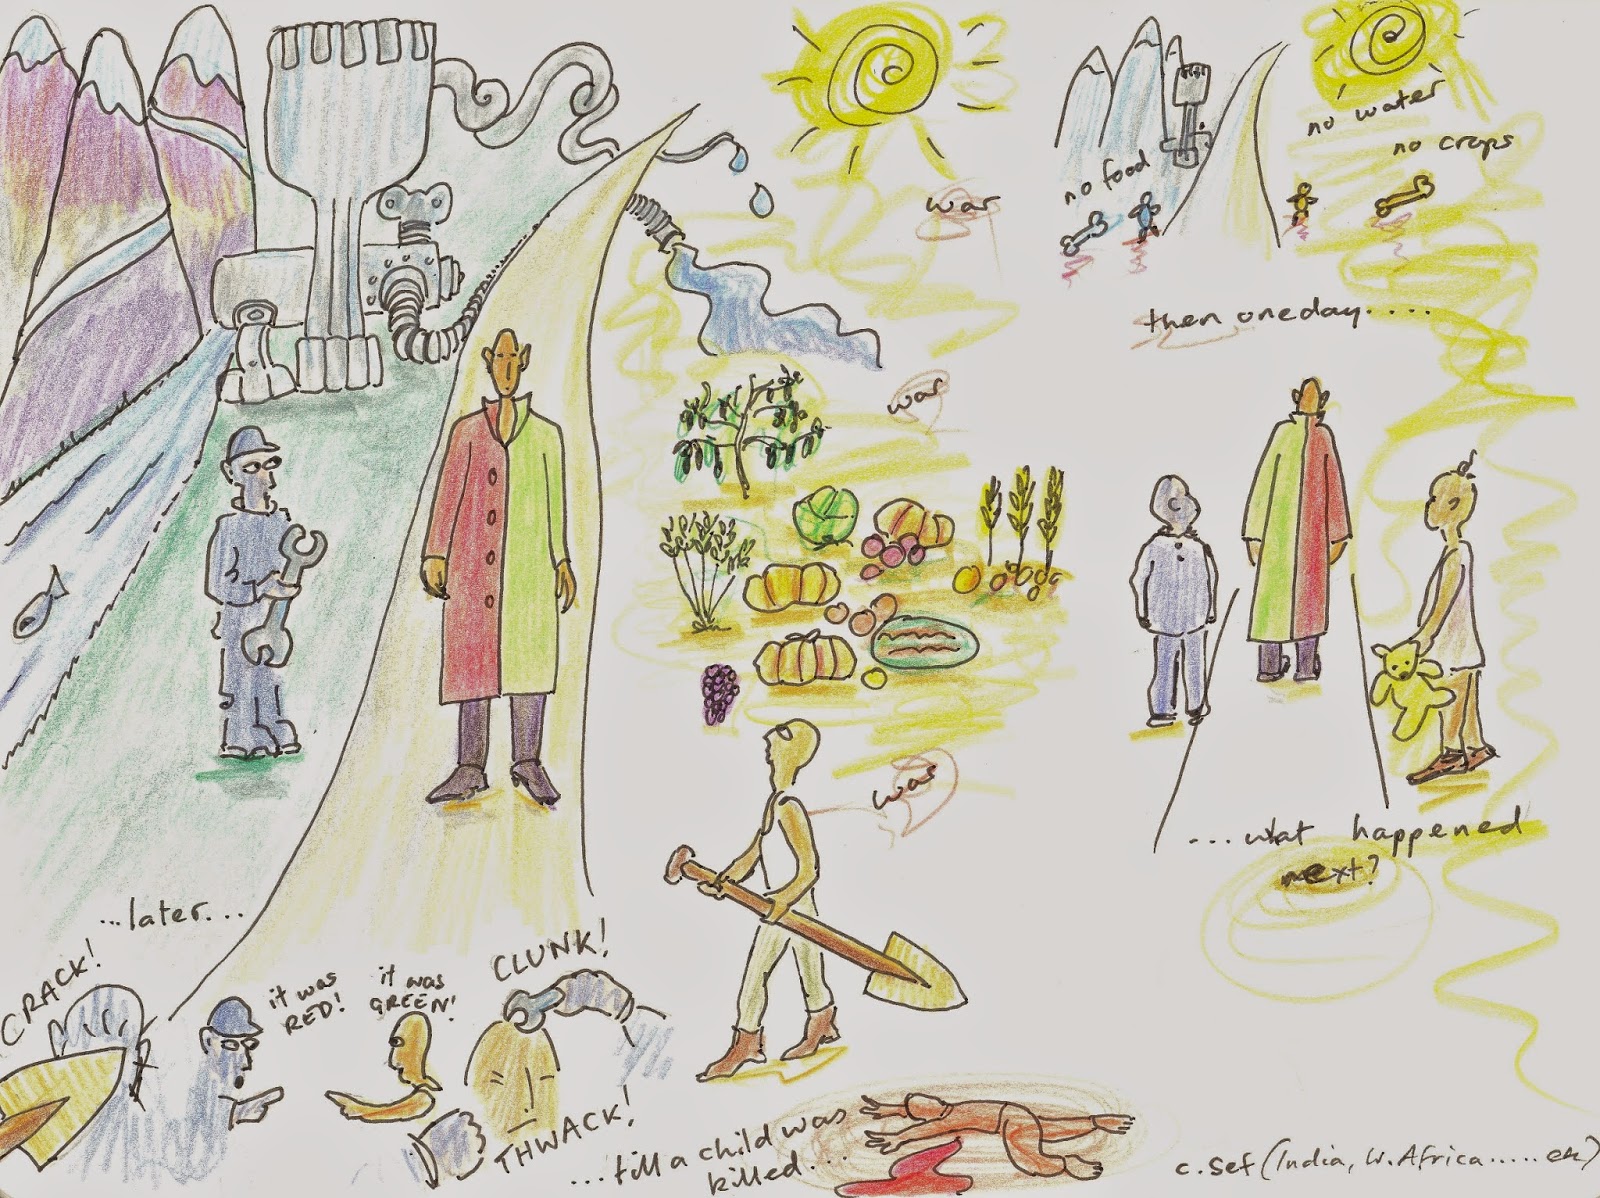 war
war
war
...later...
CRACK!
it was
RED!
it was
GREEN!
CLUNK!
THWACK!
...till a child was
killed....
no food
no water
no crops
then one day.....
...what happened
next?
c. Sef (India, W. Africa.....etc)